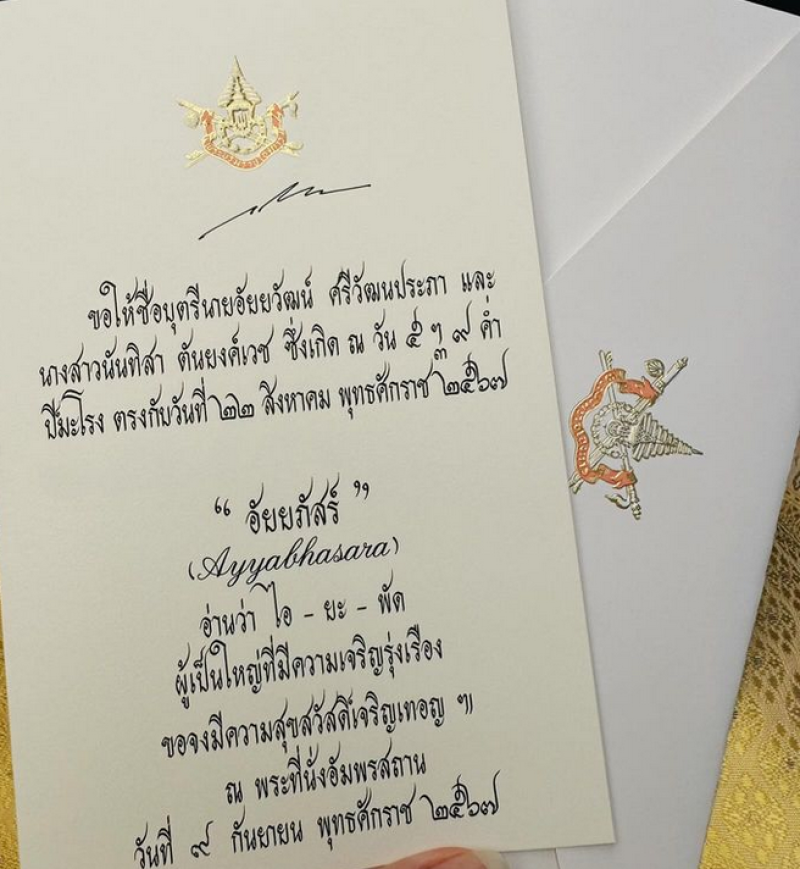 ขอให้ชื่อบุตรีนายอัยยวัฒน์ ศรีวัฒนประภา และ
นางสาวนันทิสา ตันยงค์เวช ซึ่งเกิด ณ วัน ๕ ฯ ๙ ค่ำ
๓
ปีมะโรง ตรงกับวันที่ ๒๒ สิงหาคม พุทธศักราช ๒๕๖๗
“ อัยยภัสร์ ”
(Ayyabhasara)
อ่านว่า ไอ - ยะ - พัด
ผู้เป็นใหญ่ที่มีความเจริญรุ่งเรือง
ขอจงมีความสุขสวัสดิ์เจริญเทอญ ๚
ณ พระที่นั่งอัมพรสถาน
วันที่ ๙ กันยายน พุทธศักราช ๒๕๖๗